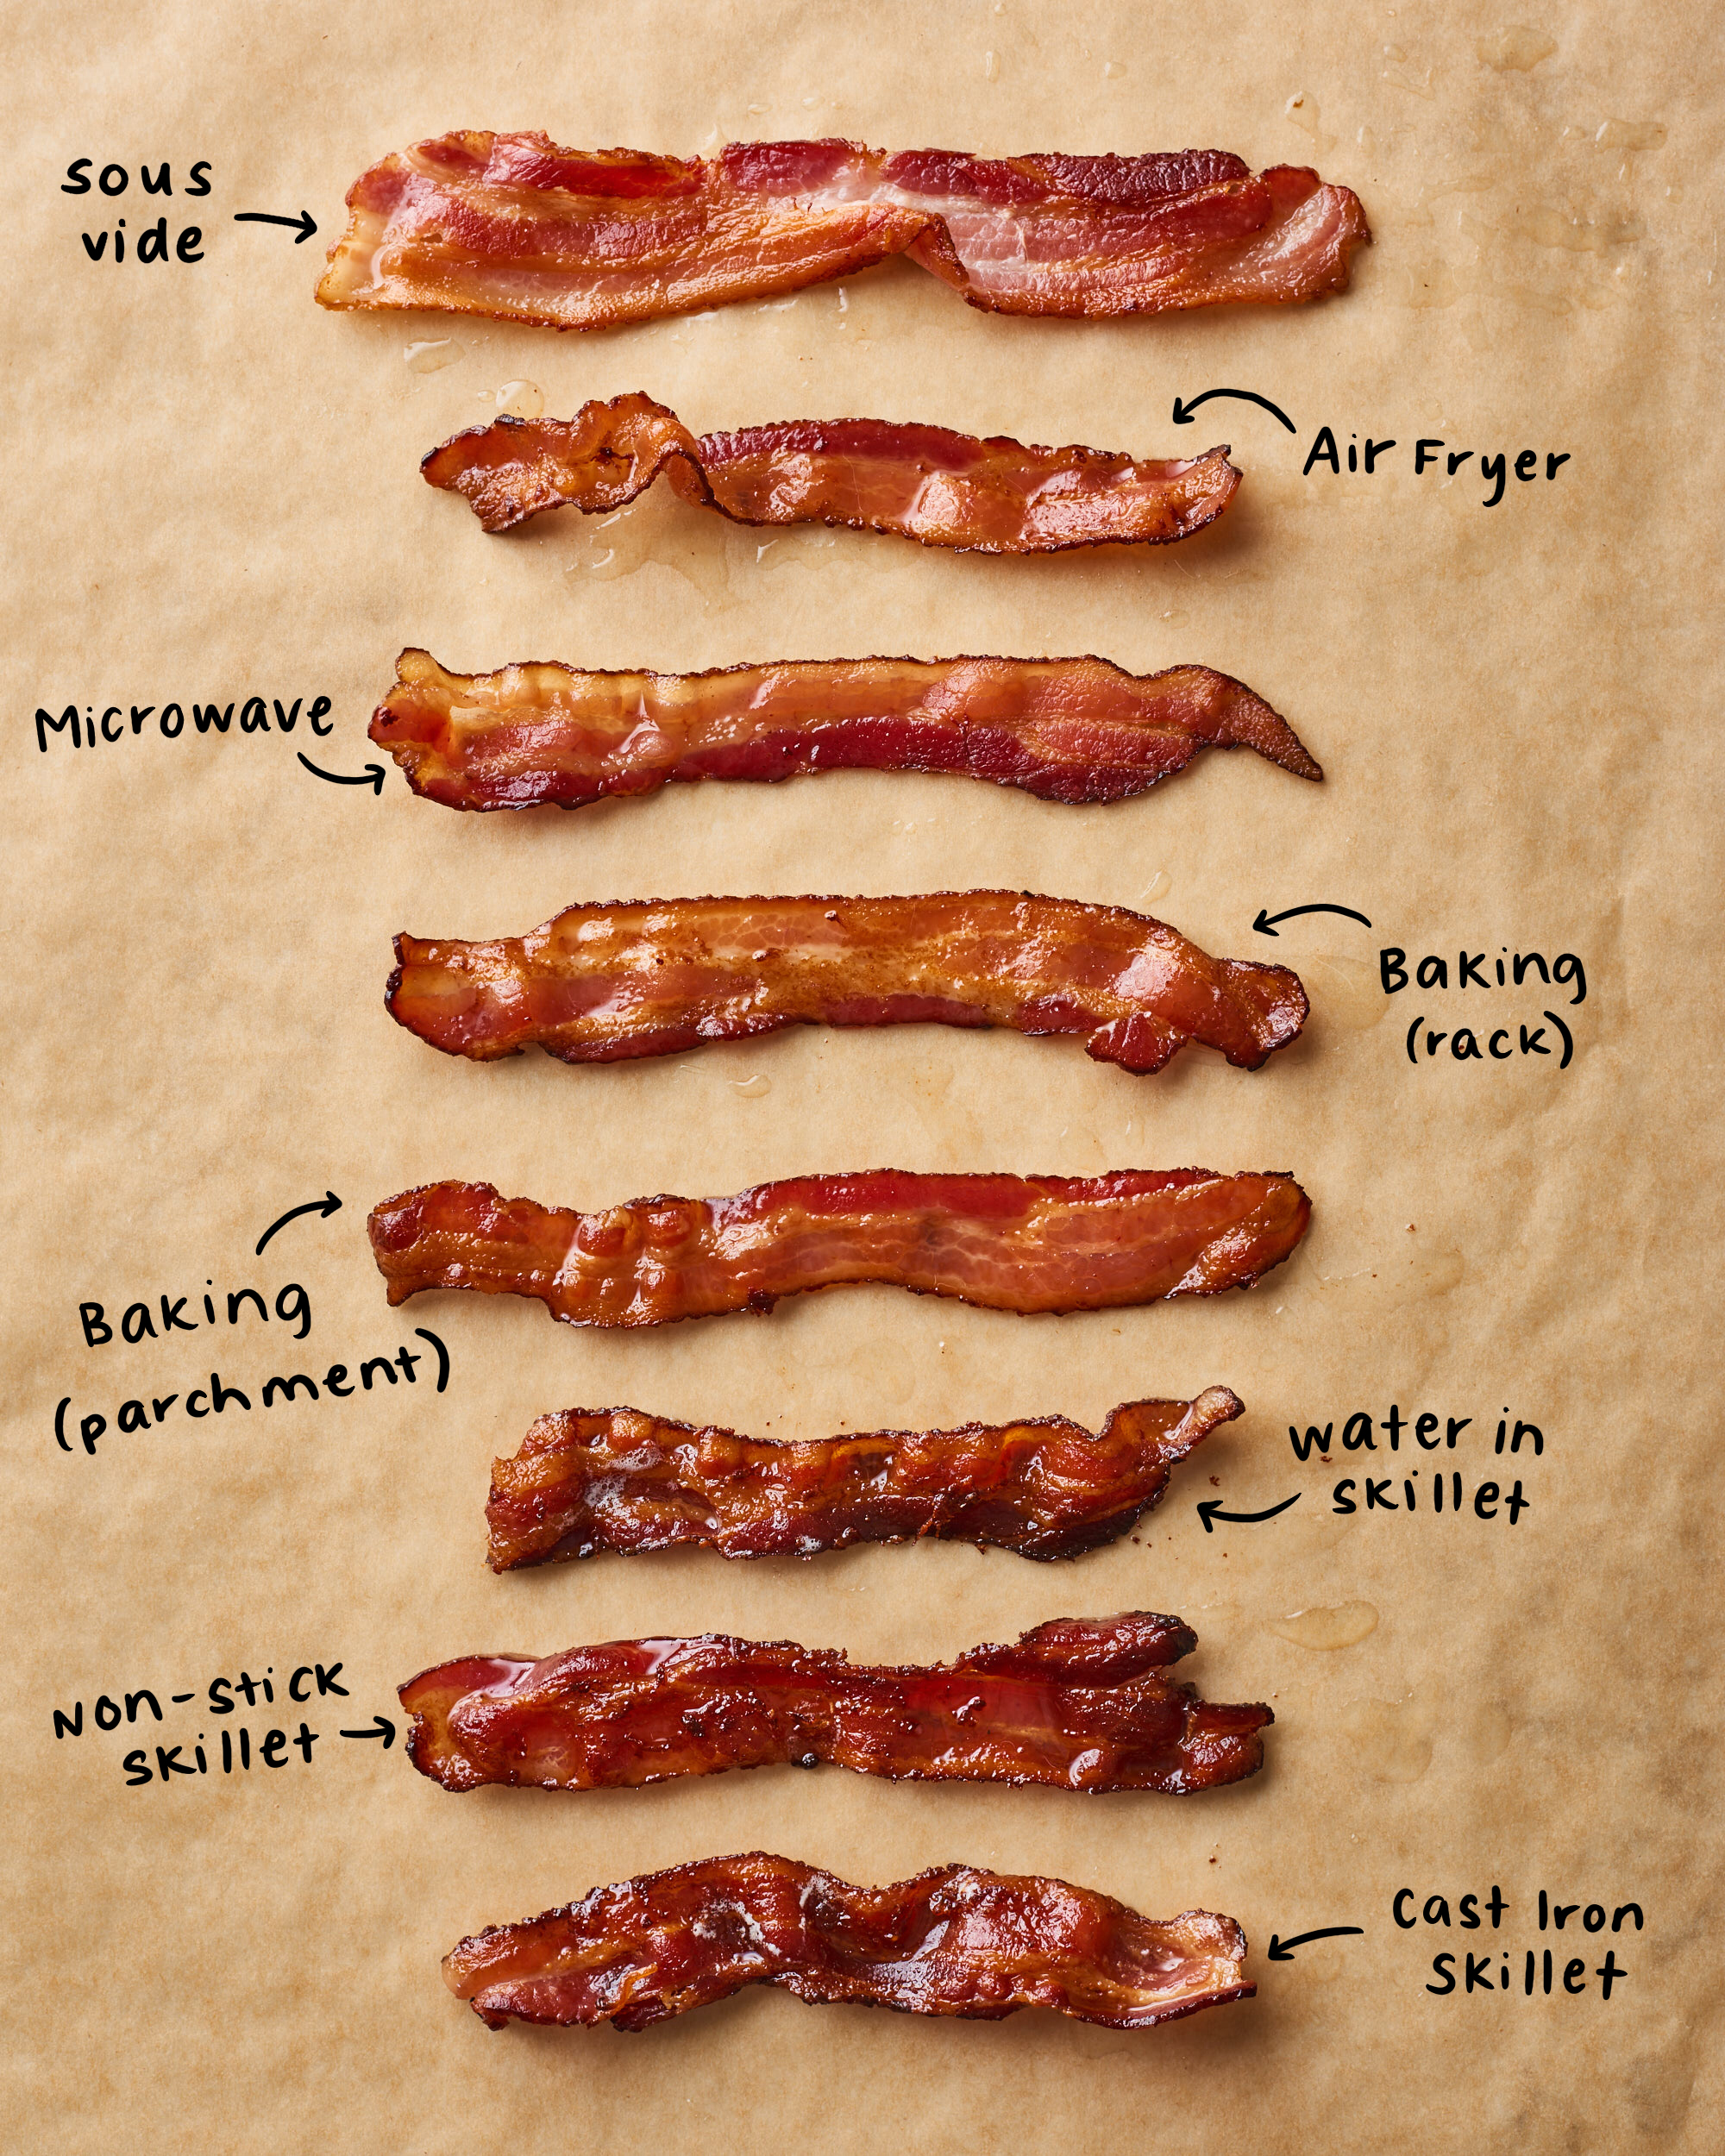 sous
vide
Air Fryer
Microwave
Baking
(rack)
Baking
(parchment)
water in
skillet
Non-stick
skillet
Cast Iron
skillet